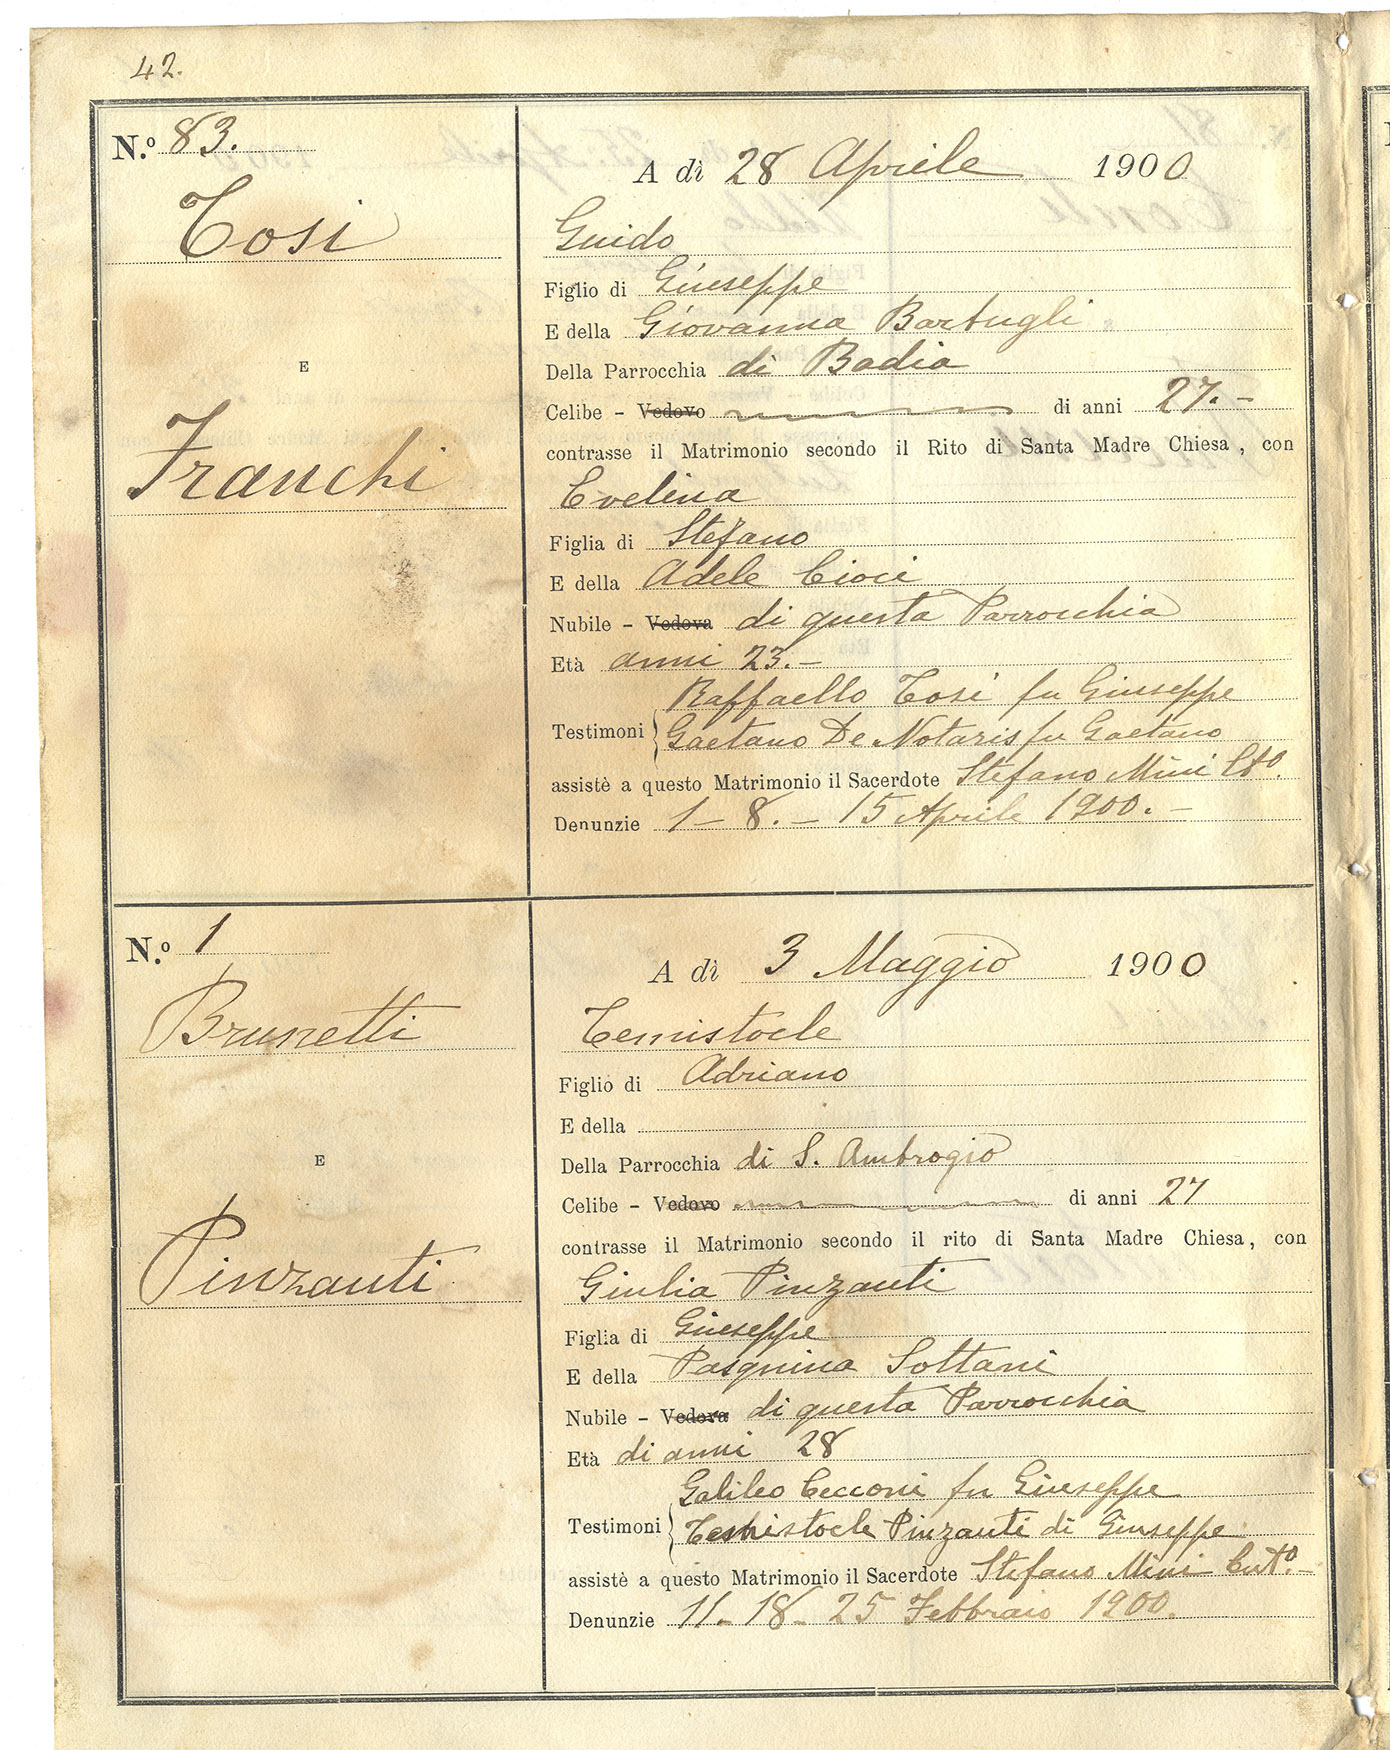 42.
N.º 83.
Tosi
E
Franchi
A dì 28 Aprile 1900
Guido
Figlio di Giuseppe
E della Giovanna Bartugli
Della Parrocchia di Badia
Celibe - Vedovo di anni 27.-
contrasse il Matrimonio secondo il Rito di Santa Madre Chiesa, con
Evelina
Figlia di Stefano
E della Adele Cioci
Nubile - Vedova di questa Parrocchia
Età anni 23.-
Raffaello Tosi fu Giuseppe
Testimoni
Gaetano De Notaris fu Gaetano
assistè a questo Matrimonio il Sacerdote Stefano Mini
Denunzie 1 - 8. - 15 Aprile 1900. -
N.º 1
Brunetti
E
Pinzauti
A dì 3 Maggio 1900
Temistocle
Figlio di Adriano
E della
Della Parrocchia di S. Ambrogio
Celibe - Vedovo di anni 27
contrasse il Matrimonio secondo il rito di Santa Madre Chiesa, con
Giulia Pinzauti
Figlia di Giuseppe
E della Pasquina Soltani
Nubile - Vedova di questa Parrocchia
Età di anni 28
Galileo Cecconi fu Giuseppe
Testimoni
Temistocle Pinzauti di Giuseppe
assistè a questo Matrimonio il Sacerdote Stefano Mini
Denunzie 11 - 18 - 25 Febbraio 1900.